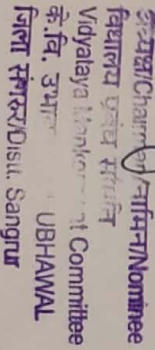 अध्यक्ष/Chairman/नामित/Nominee
विद्यालय प्रबंध समिति
Vidyalaya Committee
के.वि. उभा UBHAWAL
जिला संगरूर/Distt. Sangrur